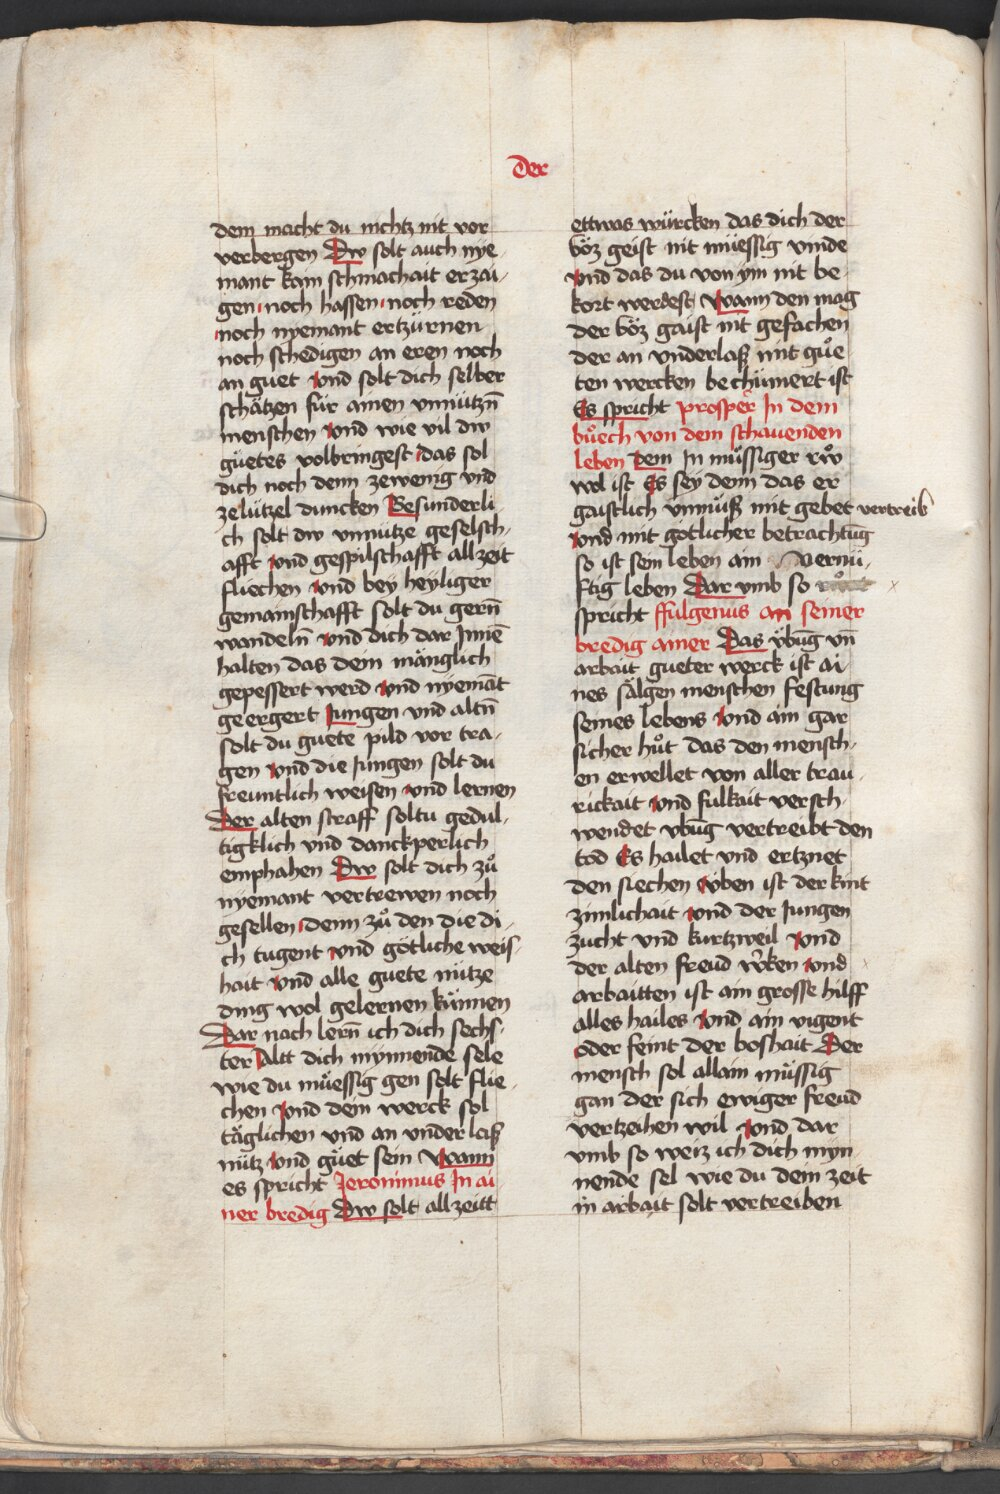 Der
dem macht du nichtz nit vor
verbergen Dw solt auch nye-
mant kain schmachait erzai-
gen noch hassen noch reden
noch nyemant ertzürnen
noch schedigen an eren noch
an guet Vnd solt dich selber
schätzen für ainen vnnützn̄
menschen Vnd wie vil dw
güetes volbringest das sol
dich noch denn zewenig vnd
zelützel duncken Besunderli
ch solt dw vnnütze geselsch-
afft Vnd gespilschafft allzeit
fliechen Vnd bey heyliger
gemainschafft solt du gern̄
wandeln̄ Vnd dich dar Jnnē
halten das dein mänglich
gepessert werd Vnd nyemāt
geergert Jungen vnd altn̄
solt du guete pild vor tra-
gen Vnd die Jungen solt du
freuntlich weisen Vnd lernen
Der alten straff soltu gedul-
tigklich vnd danckperlich
emphahen Dw solt dich zuͦ
nyemant vertrewen noch
gesellen denn zuͦ den die di-
ch tugent Vnd götliche weis-
hait Vnd alle guete nütze
ding wol gelernen künnen
Dar nach lern̄ ich dich sechs-
ter Altt dich mynnende sele
wie du müessig gen solt flie-
chen Vnd dein werck sol
täglichen vnd an vnderlaß
nütz Vnd güet sein Wann
es spricht Jeronimus Jn ai-
ner bredig Dw solt allzeitt
ettwas würcken das dich der
böz geist nit müessig vinde
Vnd das du von ym nit be-
kort werdest Wann den mag
der böz gaist nit gefachen
der an vnderlaß mit guͦe
ten wercken bechümert ist
Es spricht prosper Jn dem
buͦech von dem schauenden
leben Dem Jn müssiger rwͦ
wol ist Es sey denn das er
gaistlich vnmuͦß mit gebet vertreib
Vnd mit götlicher betrachtūg
so ist sein leben ain Vernü-
ftig leben Dar vmb so
spricht ffulgenus an seiner
bredig ainer Das vbūg vn̄
arbait gueter werck ist ai-
nes sälgen menschen festung
seines lebens Vnd ain gar
sicher huͦt das den mensch-
en erwellet von aller trau-
rickait Vnd fulkait versch-
wendet vbūg vertreibt den
tod Es hailet vnd ertznet
den siechen Vben ist der kint
zimlichait Vnd der Jungen
zucht vnd kurtzweil Vnd
der alten freud wͤrken Vnd
arbaitten ist ain grosse hilff
alles hailes Vnd ain vigent
oder feint der boshait Der
mensch sol allain müssig
gan der sich ewiger freud
vertzeihen wil Vnd dar
vmb so weiz ich dich myn-
nende sel wie du dein zeit
in arbait solt vertreiben